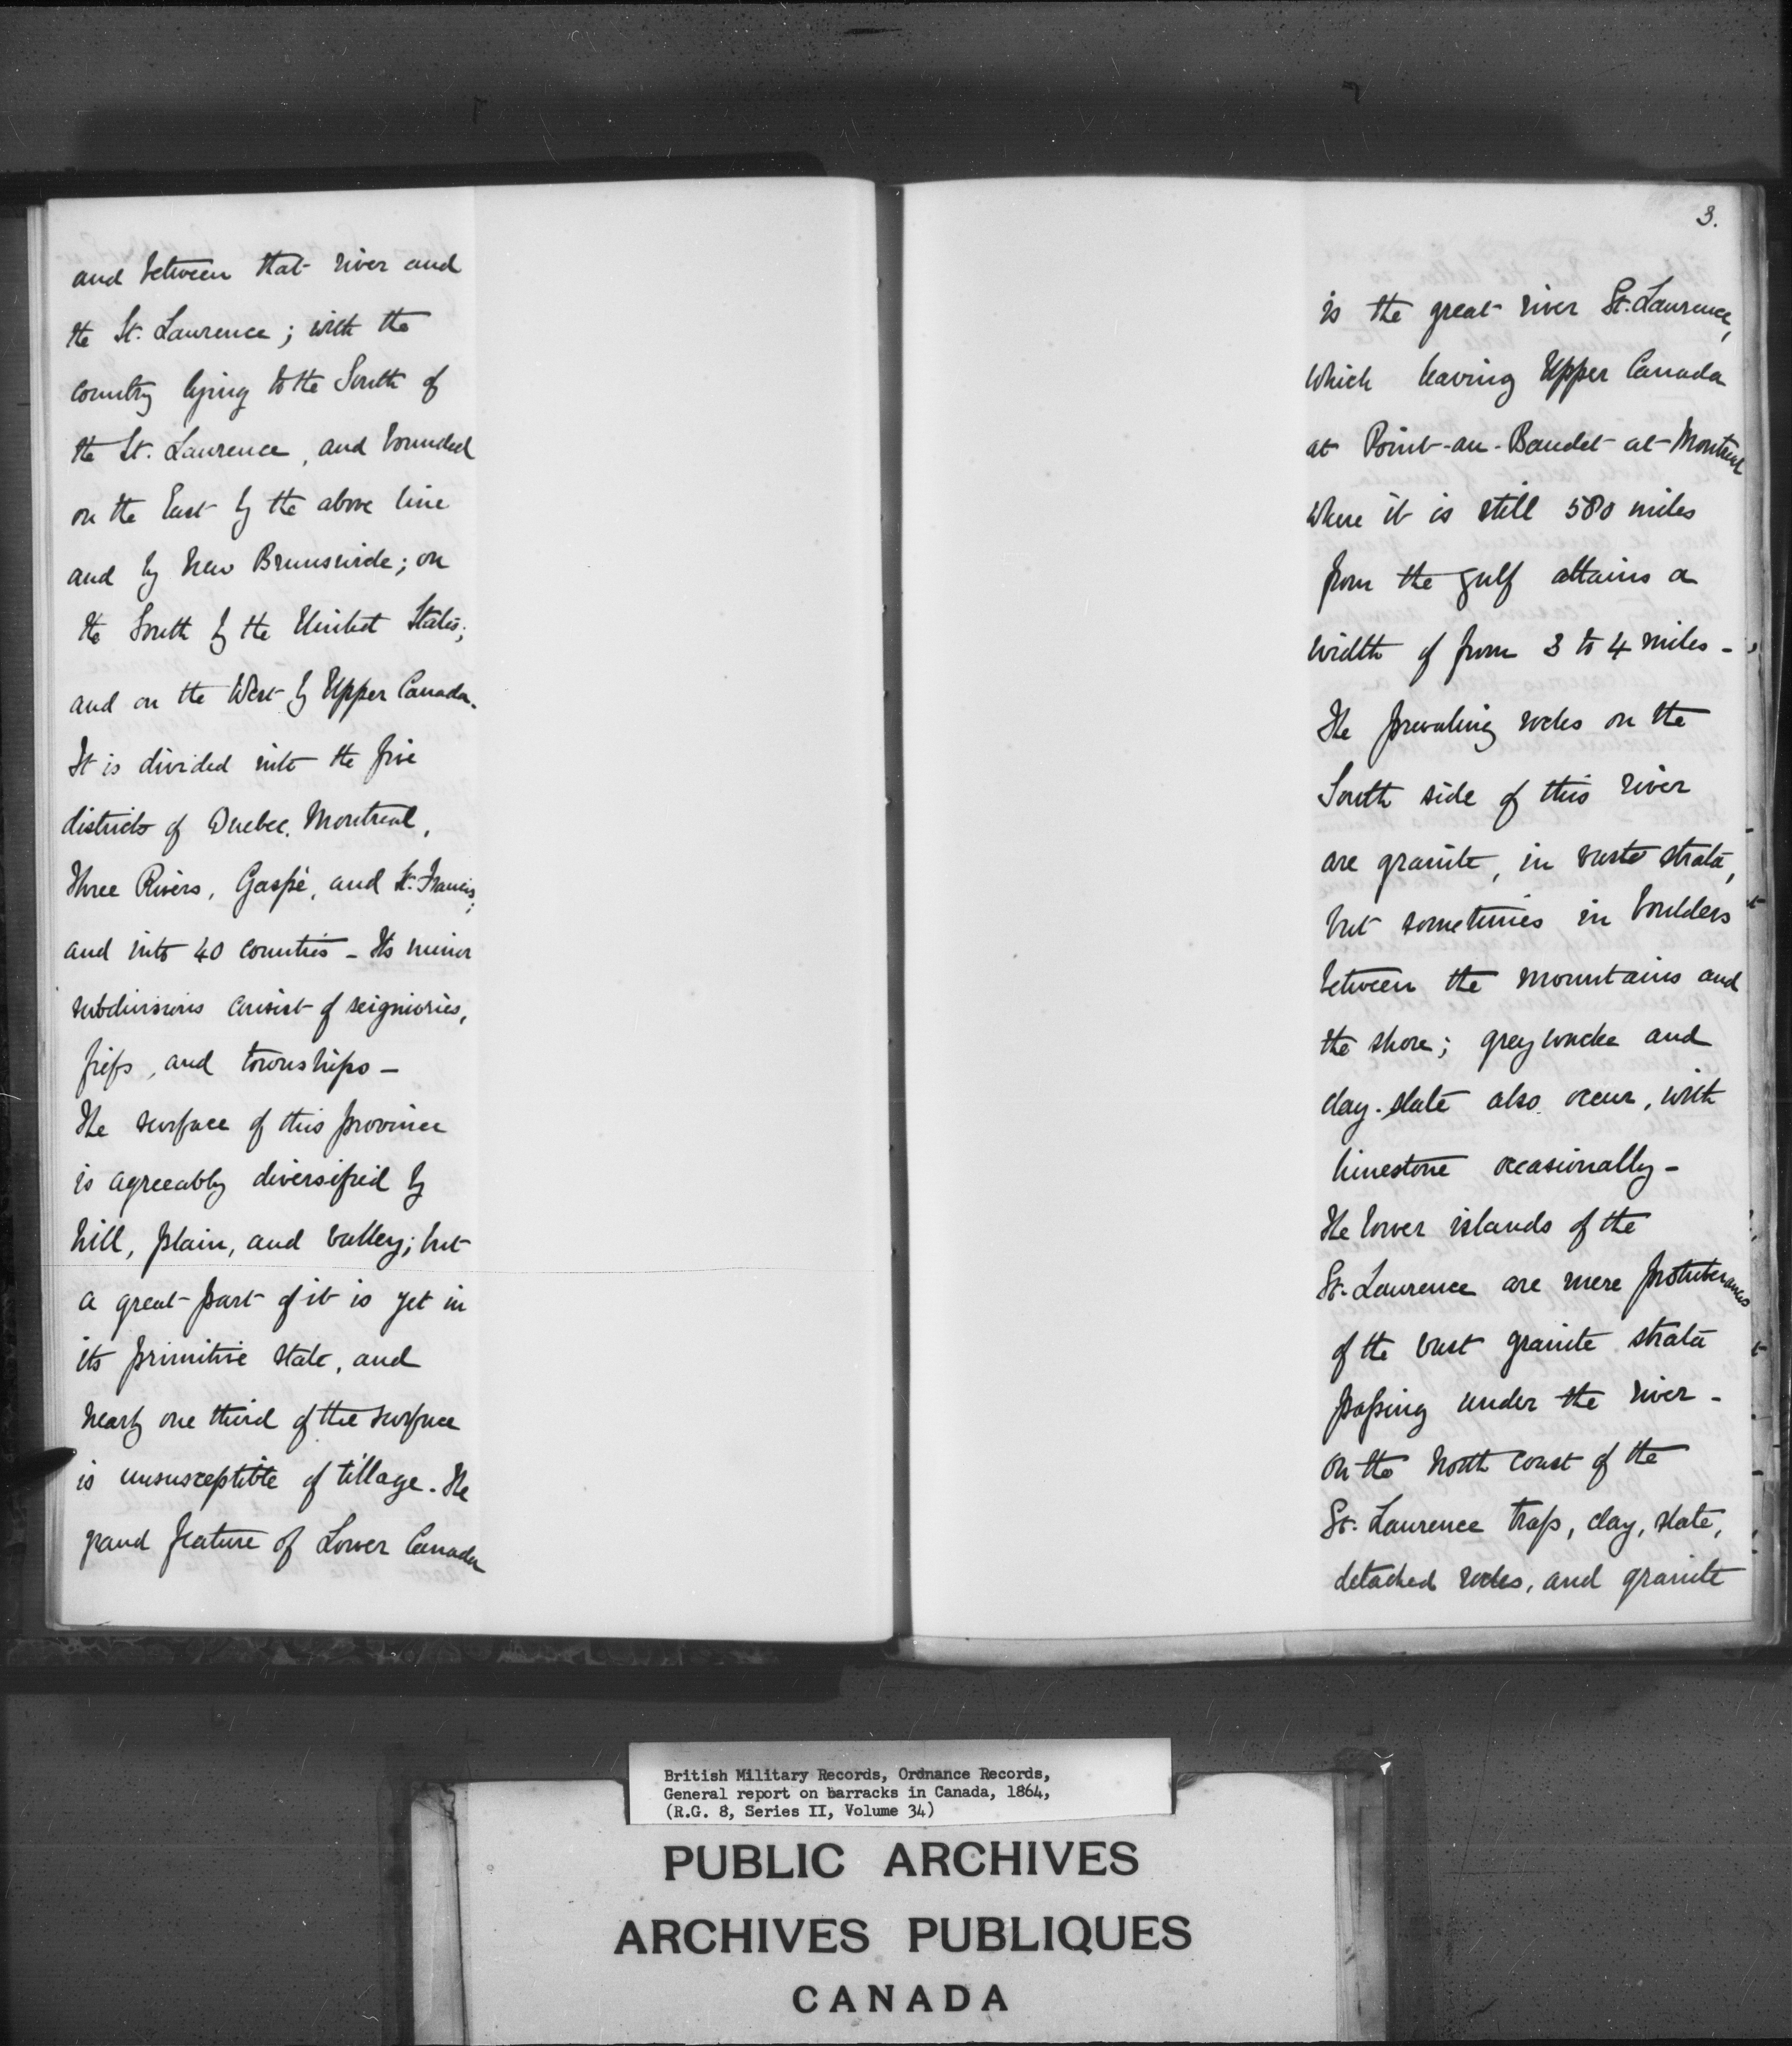 and between that river and
the St. Laurence; with the
country lying to the South of
the St. Laurence, and bounded
on the East by the above line
and by New Brunswick; on
the South by the United States;
and on the West by Upper Canada.
It is divided into the five
districts of Quebec, Montreal,
Three Rivers, Gaspé, and St. Francis;
and into 40 counties - Its minor
subdivisions consist of seigniories,
fiefs, and townships -
The surface of this province
is agreeably diversified by
hill, plain, and valley; but
a great part of it is yet in
its primitive state, and
nearly one third of the surface
is unsusceptible of tillage. The
grand feature of Lower Canada
3.
is the great river St. Laurence,
which leaving Upper Canada
at Point-au-Baudet at Montreal
where it is still 580 miles
from the gulf attains a
width of from 3 to 4 miles -
The prevaling rocks on the
South side of this river
are granite, in vast strata,
but sometimes in boulders
between the mountains and
the shore; greywacke and
clay-slate also occur, with
limestone occasionally -
The lower islands of the
St. Laurence are mere protuberances
of the vast granite strata
passing under the river -
On the North coast of the
St. Laurence trap, clay, slate,
detached rocks, and granite
British Military Records, Ordnance Records,
General report on barracks in Canada, 1864,
(R.G. 8, Series II, Volume 34)
PUBLIC ARCHIVES
ARCHIVES PUBLIQUES
CANADA